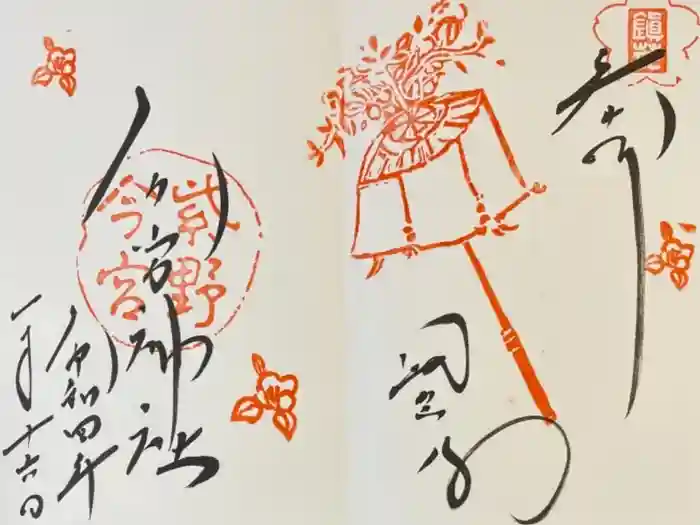 鎮花
奉
今宮神社
紫野
今宮
令和四年
一月十六日